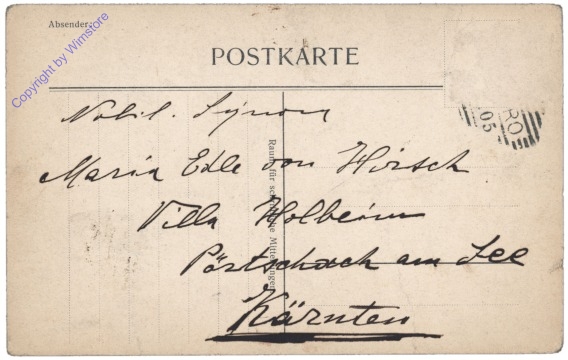 Absender:
Copyright by Wimstore
POSTKARTE
RO
05
Nobil. Signora
Maria Edle von Hirsch
Raum für schriftliche Mitteilungen
Villa Holbeim
Pörtschach am See
Kärnten